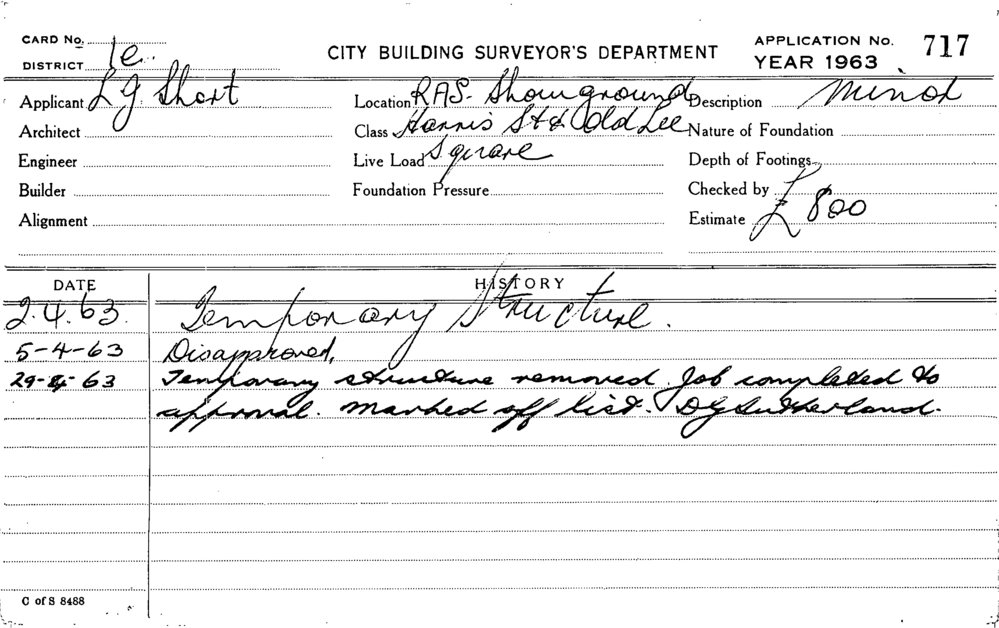 CARD No.
CITY BUILDING SURVEYOR'S DEPARTMENT
APPLICATION No. 717
DISTRICT 1e
YEAR 1963
Applicant L G Short
Location RAS. Showground
Description Minor
Architect
Class Harris St & Old Lee
Nature of Foundation
Engineer
Live Load Square
Depth of Footings
Builder
Foundation Pressure
Checked by
Alignment
Estimate £ 800
DATE HISTORY
2.4.63. Temporary Structure.
5-4-63 Disapproved,
29-4-63 Temporary structure removed. Job completed to
approval. Marked off list. DG Sutherland.
C of S 8488